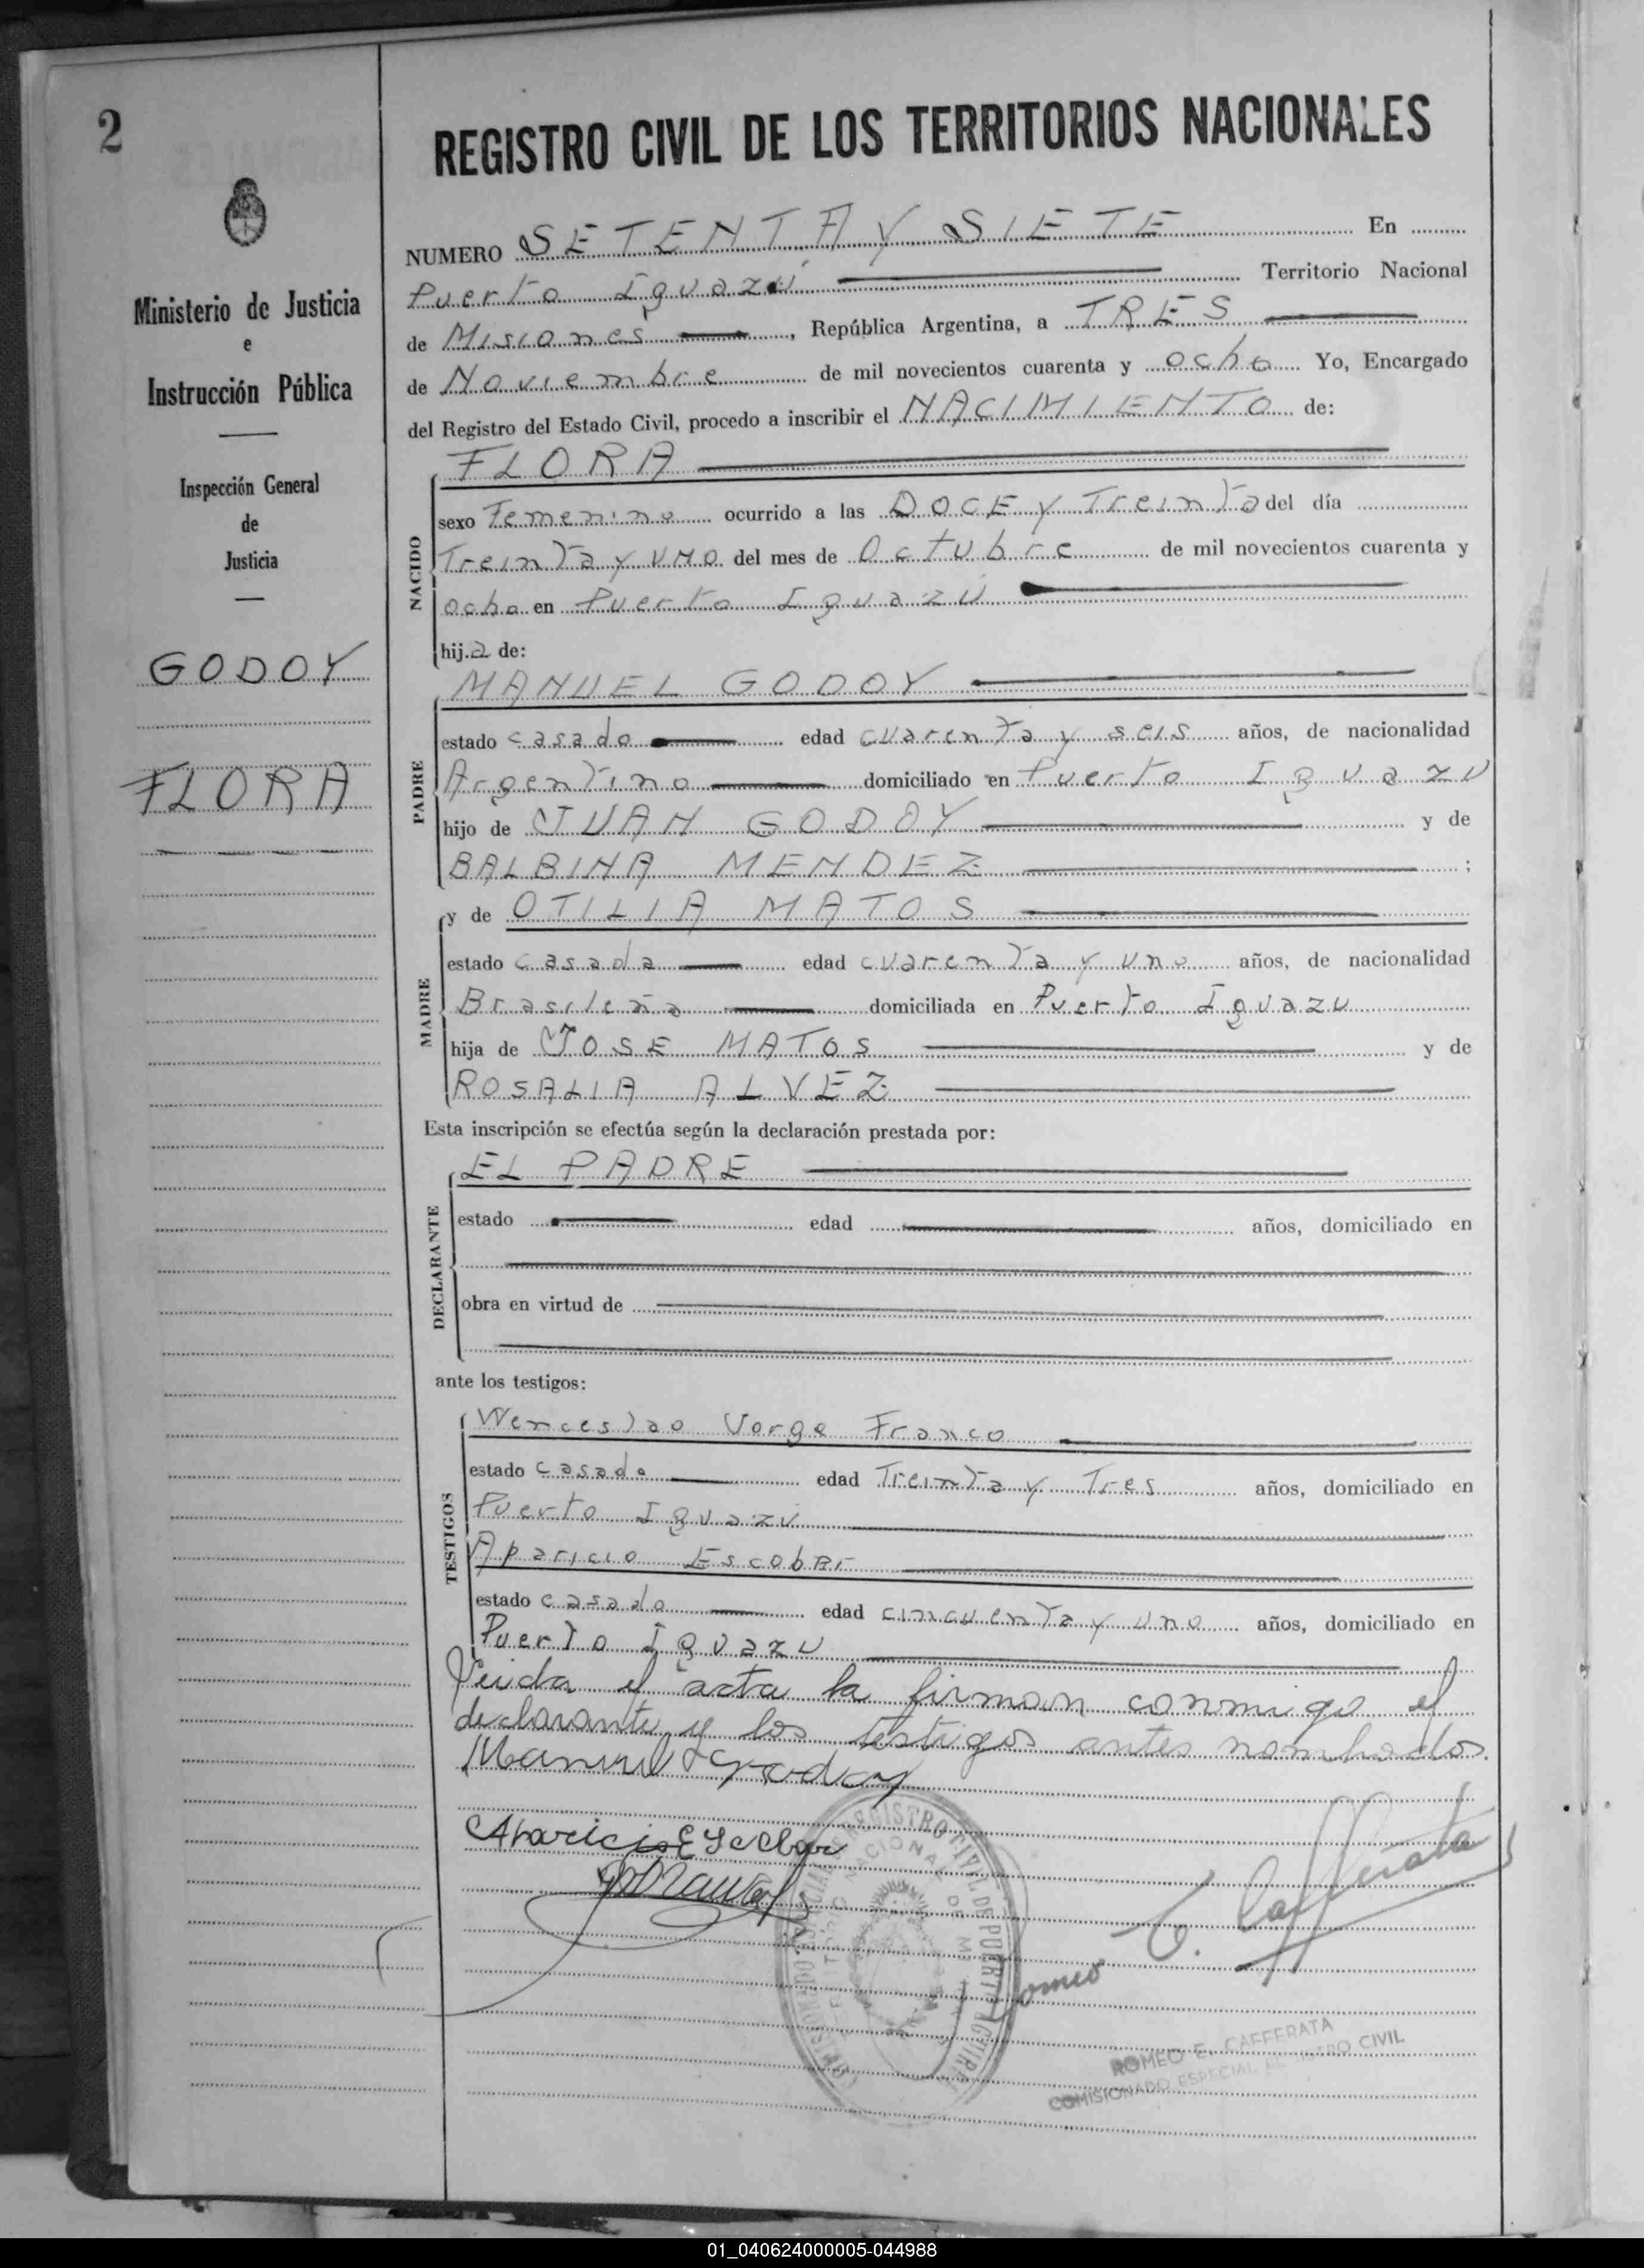 2
Ministerio de Justicia
e
Instrucción Pública
Inspección General
de
Justicia
GODOY
FLORA
REGISTRO CIVIL DE LOS TERRITORIOS NACIONALES
NUMERO SETENTA Y SIETE En
Puerto Iguazú Territorio Nacional
de Misiones, República Argentina, a TRES
de Noviembre de mil novecientos cuarenta y ocho Yo, Encargado
del Registro del Estado Civil, procedo a inscribir el NACIMIENTO de:
NACIDO
FLORA
sexo Femenino ocurrido a las DOCE y Treinta del día
Treinta y uno del mes de Octubre de mil novecientos cuarenta y
ocho en Puerto Iguazú
hija de:
PADRE
MANUEL GODOY
estado casado edad cuarenta y seis años, de nacionalidad
Argentino domiciliado en Puerto Iguazu
hijo de JUAN GODOY y de
BALBINA MENDEZ ;
MADRE
y de OTILIA MATOS
estado casada edad cuarenta y uno años, de nacionalidad
Brasileña domiciliada en Puerto Iguazu
hija de JOSE MATOS y de
ROSALIA ALVEZ
Esta inscripción se efectúa según la declaración prestada por:
DECLARANTE
EL PADRE
estado edad años, domiciliado en
obra en virtud de
ante los testigos:
TESTIGOS
Wenceslao Jorge Franco
estado casado edad Treinta y Tres años, domiciliado en
Puerto Iguazu
Aparicio Escobar
estado casado edad cincuenta y uno años, domiciliado en
Puerto Iguazu
Leida el acta la firman conmigo el
declarante y los testigos antes nombrados.
Manuel Godoy
Aparicio Escobar
Romeo E. Cafferata
ROMEO E. CAFFERATA
COMISIONADO ESPECIAL REGISTRO CIVIL
01_040624000005-044988